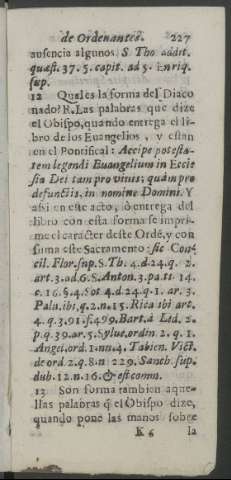 de Ordenantes. 227
ausencia algunos. S. Tho. addit.
quæst. 37. 5. capit. ad 5. Enriq.
sup.
12 Qual es la forma del Diaco
nado? R. Las palabras que dize
el Obispo, quando entrega el li-
bro de los Euangelios, y estan
en el Pontifical: Accipe potesta-
tem legendi Euangelium in Eccle
sia Dei tam pro viuis, quàm pro
defunctis, in nomine Domini. Y
assi en este acto, ò entrega del
libro con esta forma se impri-
me el caracter deste Ordé, y con
suma este Sacramento: sic Con-
cil. Flor. sup. S. Th. 4. d. 24. q. 2.
art. 3. ad. 6. S. Anton. 3. pa. tt. 14.
c. 16. §. 4. Sot 4. d. 24. q. 1. ar. 3.
Palu. ibi, q. 2. n. 15. Rica ibi art.
4. q. 3. 91. f. 499. Bart. à Led. 2.
p. q. 39. ar. 5. Sylue. ordin. 2. q. 1.
Angel. ord. 1. nu. 4. Tabien. Vict.
de ord. 2. q. 8. n 229. Sanch. sup.
dub. 12. n. 16. & est comm.
13 Son forma tambien aque-
llas palabras q̃ el Obispo dize,
quando pone las manos sobre
K 6 la